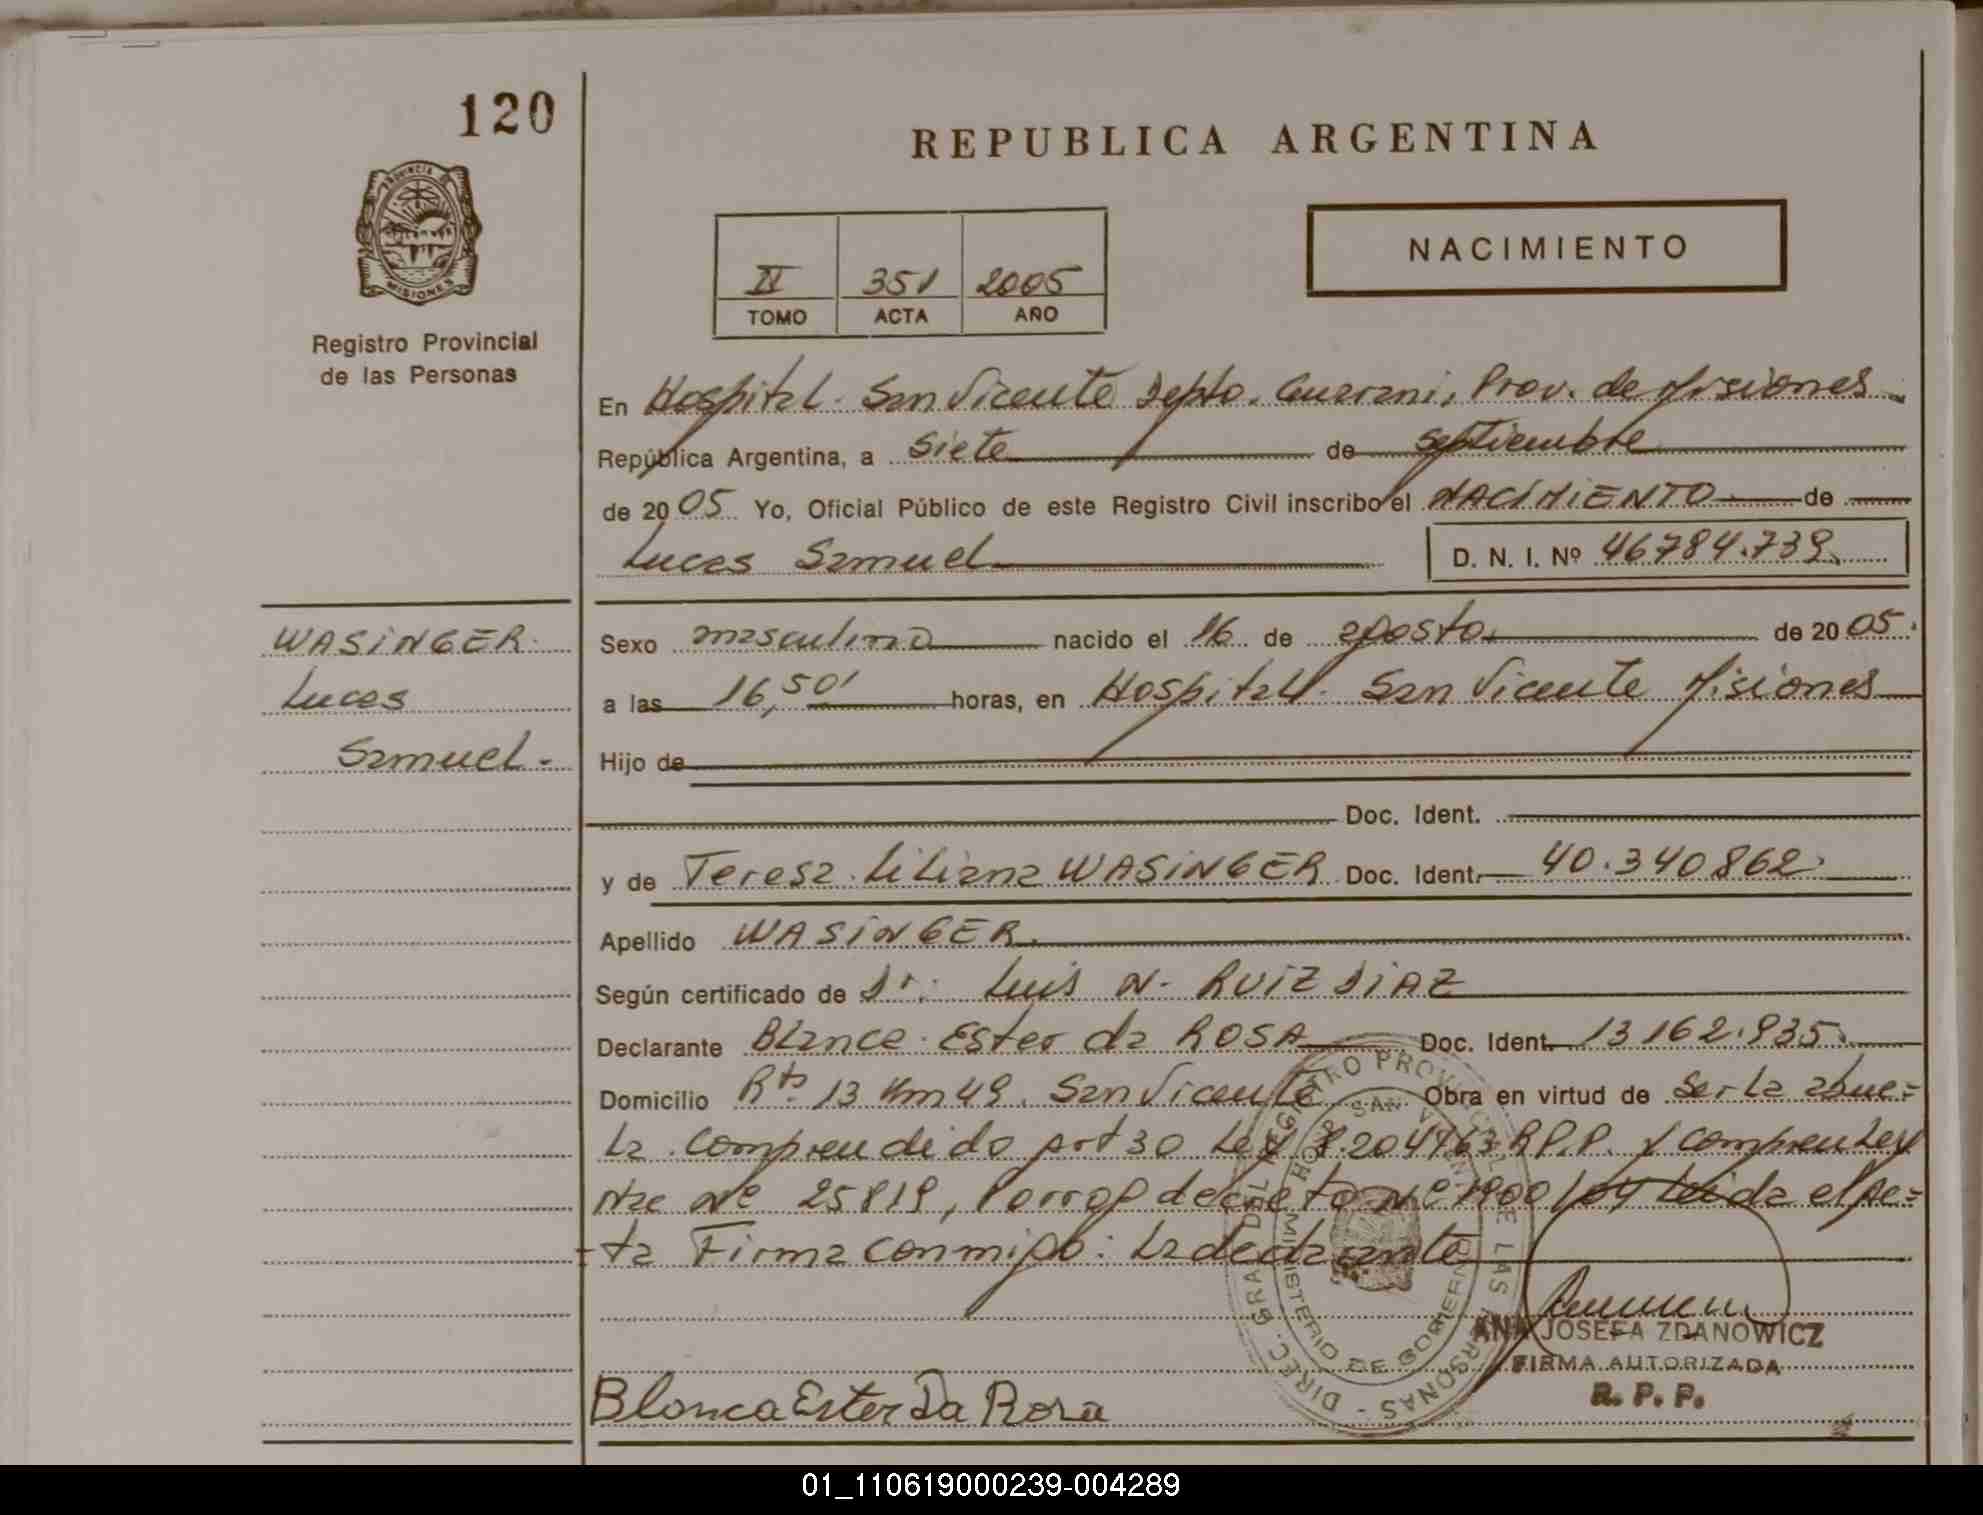 120
REPUBLICA ARGENTINA
PROVINCIA DE
MISIONES
Registro Provincial
de las Personas
NACIMIENTO
II 351 2005
TOMO ACTA AÑO
En Hospital. San Vicente Depto. Guarani, Prov. de Misiones
República Argentina, a Siete de Septiembre
de 2005 Yo, Oficial Público de este Registro Civil inscribo el NACIMIENTO de
Lucas Samuel D. N. I. Nº 46784.739
WASINGER
Lucas
Samuel -
Sexo masculino nacido el 16 de agosto de 2005.
a las 16,50' horas, en Hospital. San Vicente Misiones
Hijo de
Doc. Ident.
y de Teresa Liliana WASINGER Doc. Ident. 40.340862
Apellido WASINGER.
Según certificado de Dr. Luis N. RUIZ DIAZ
Declarante Blanca Ester da ROSA Doc. Ident. 13162.935.
Domicilio Rta. 13 Km 49. San Vicente Obra en virtud de Ser La abue=
La Comprendido Art 30 Ley R.P.P. y Compren Ley
Nac Nº 25819, Prorrog decreto Nº 1900/04 Leida el Ac=
-ta Firma conmigo: La declarante
DIREC. GRAL DEL REGISTRO PROVINCIAL DE LAS PERSONAS -
MINISTERIO DE GOBIERNO
HOSP. SAN VICENTE
ANA JOSEFA ZDANOWICZ
FIRMA AUTORIZADA
R. P. P.
Blanca Ester Da Rosa
01_110619000239-004289